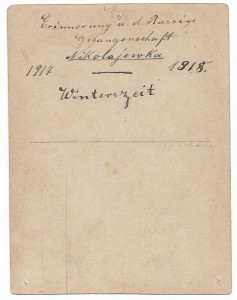 Erinnerung a. d. Russige
Gefangenschaft
Nikolajewka
1917 — 1918.
Winterszeit